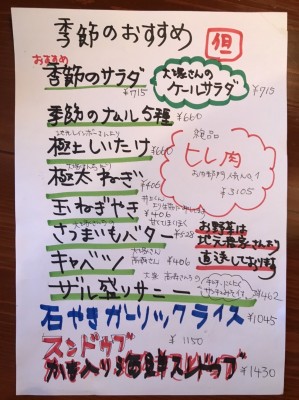 季節のおすすめ
但
おすすめ
季節のサラダ
¥715
大塚さんの
ケールサラダ
¥715
季節のナムル5種
¥660
極上しいたけ
¥660
絶品
ヒレ肉
¥3105
極太ねぎ
¥406
玉ねぎやき
¥406
さつまいもバター
¥528
お野菜は
地元農家さんより
直送しております
キャベツ
¥406
ザル盛りサニー
¥462
石やきガーリックライス
¥1045
スンドゥブ
¥1150
かき入り海鮮スンドゥブ
¥1430